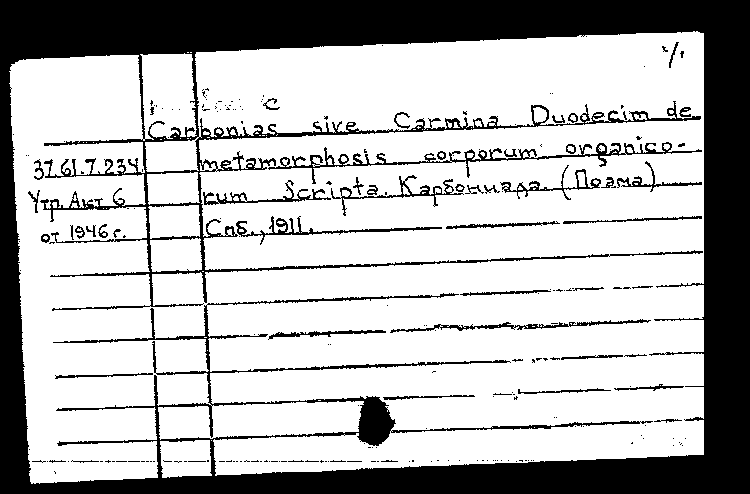 Carbonias sive Carmina Duodecim de
37.61.7.234 metamorphosis corporum organico-
Утр. Акт 6 rum Scripta. Карбониада. (Поэма)
от 1946 г. Спб., 1911.